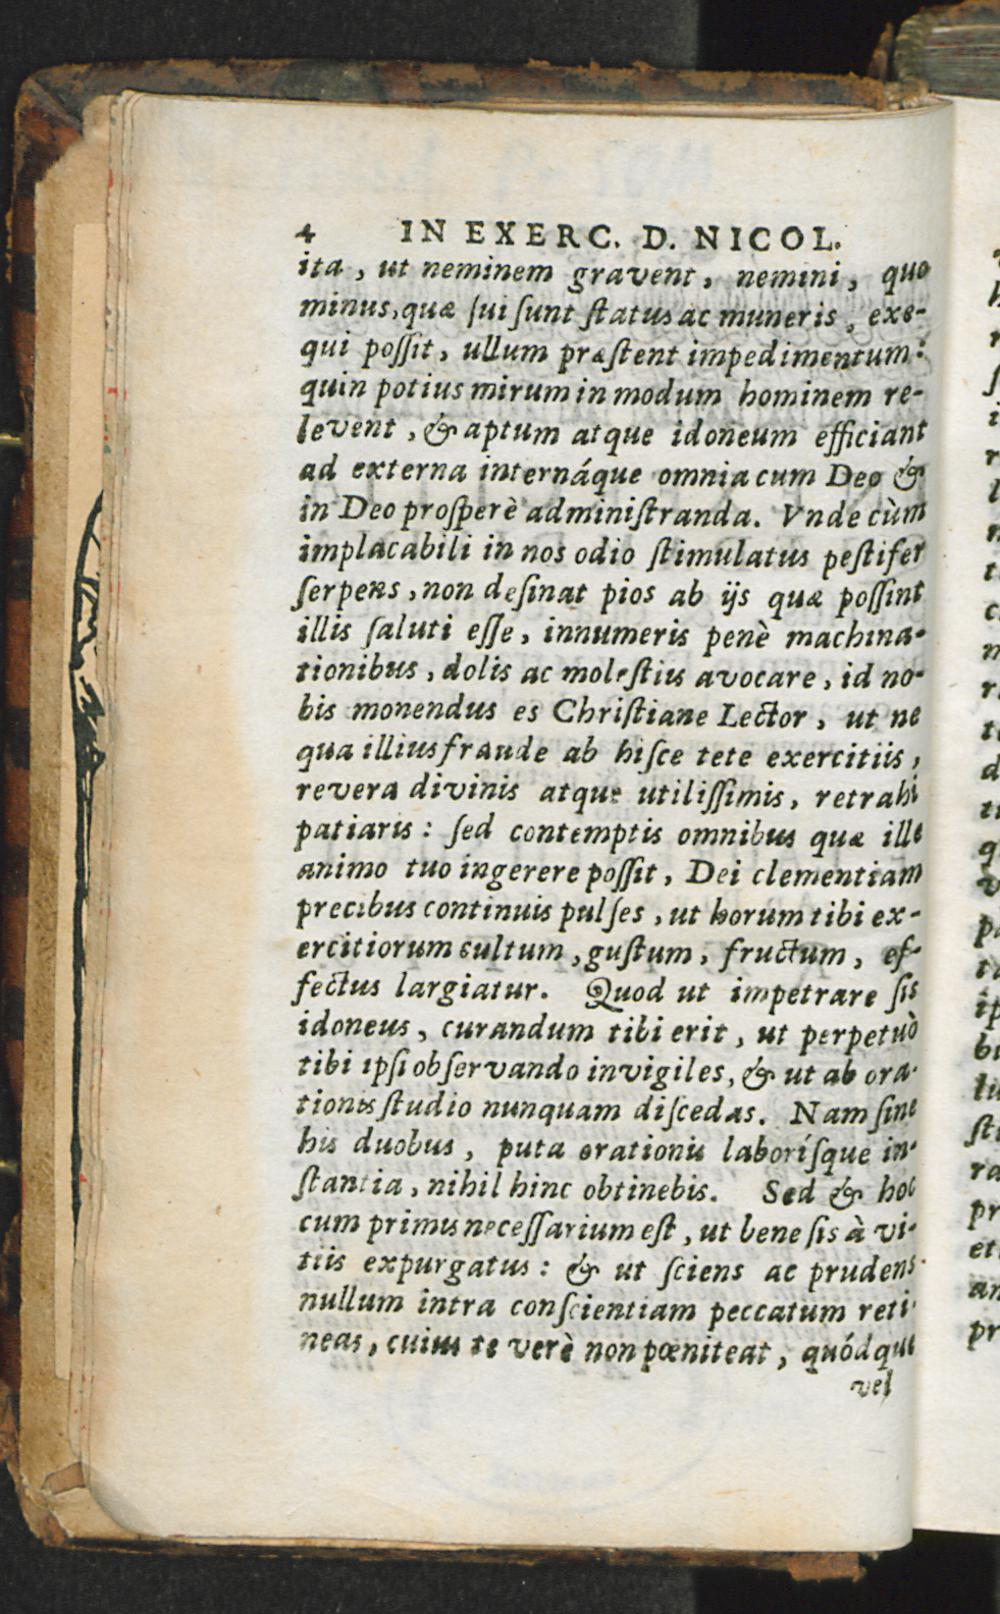 4 IN EXERC. D. NICOL.
ita, ut neminem gravent, nemini, quo
minus, quæ ſui ſunt ſtatus ac muneris, exe-
qui poſſit, ullum præſtent impedimentum:
quin potius mirum in modum hominem re-
levent, & aptum atque idoneum efficiant
ad externa internáque omnia cum Deo &
in Deo proſperè adminiſtranda. Vnde cùm
implacabili in nos odio ſtimulatus peſtifer
ſerpens, non deſinat pios ab ijs quæ poſſint
illis ſaluti eſſe, innumeris penè machina-
tionibus, dolis ac moleſtiis avocare, id no-
bis monendus es Chriſtiane Lector, ut ne
qua illius fraude ab hiſce tete exercitiis,
revera divinis atque utiliſſimis, retrahi
patiaris: ſed contemptis omnibus quæ ille
animo tuo ingerere poſſit, Dei clementiam
precibus continuis pulſes, ut horum tibi ex-
ercitiorum cultum, guſtum, fructum, ef-
fectus largiatur. Quod ut impetrare ſis
idoneus, curandum tibi erit, ut perpetuò
tibi ipſi obſervando invigiles, & ut ab ora-
tionis ſtudio nunquam diſcedas. Nam ſine
his duobus, puta orationis laboríſque in-
ſtantia, nihil hinc obtinebis. Sed & hoc
cum primis neceſſarium eſt, ut bene ſis à vi-
tiis expurgatus: & ut ſciens ac prudens
nullum intra conſcientiam peccatum reti-
neas, cuius te verè non pœniteat, quódque
vel